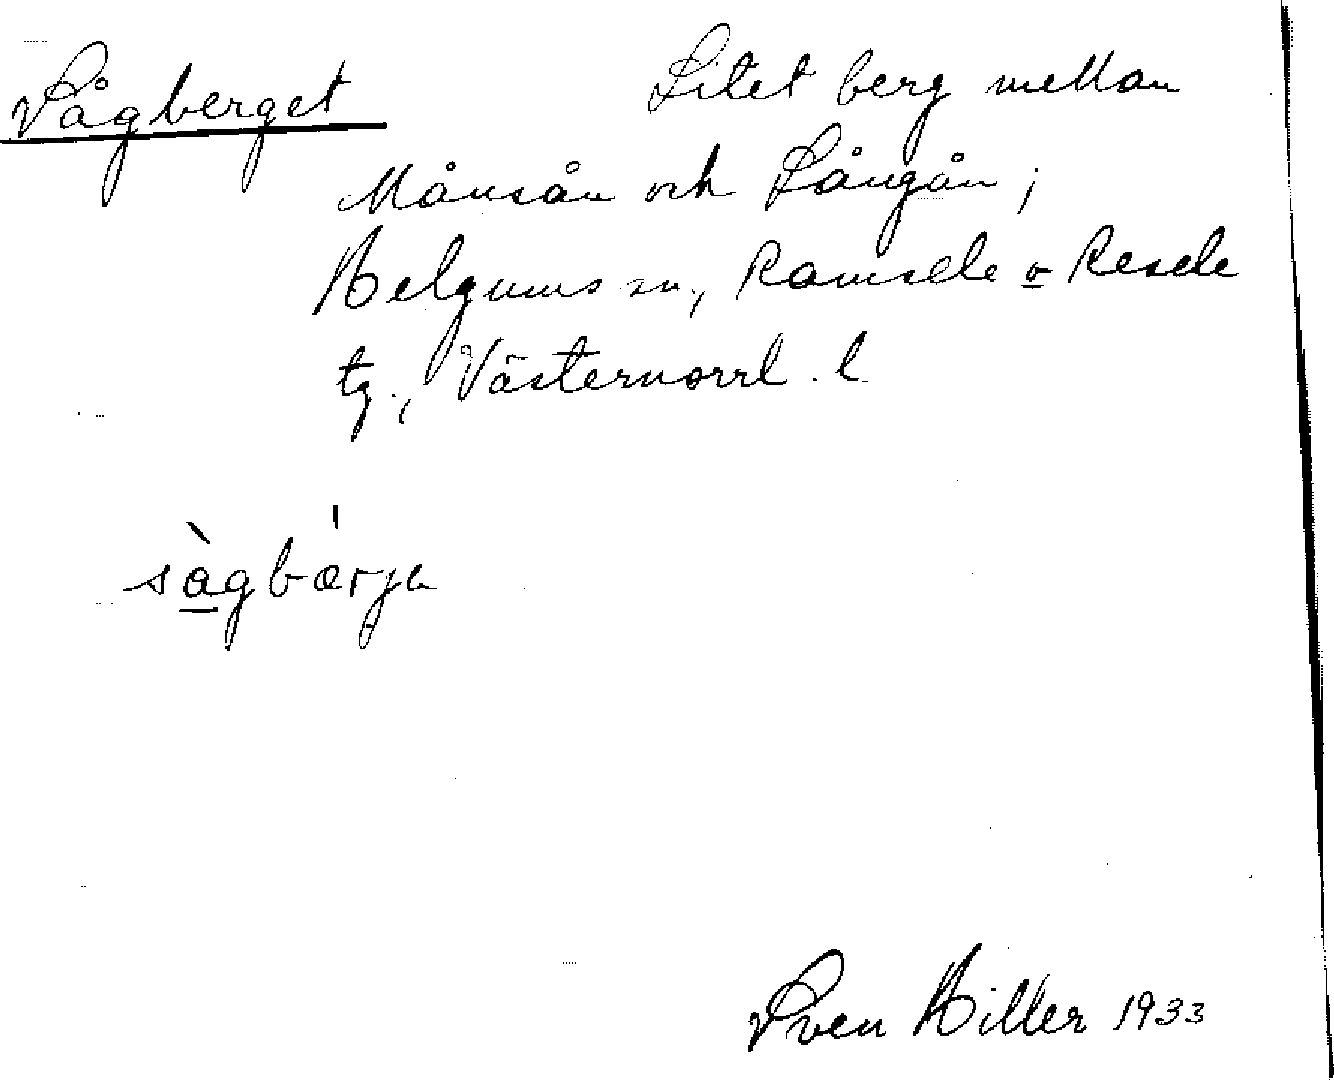 Sågberget
Litet berg mellan
Månsån och Långån;
Helgums sn, Ramsele o Resele
tg., Västernorrl. l.
sågbærja
Sven Hiller 1933